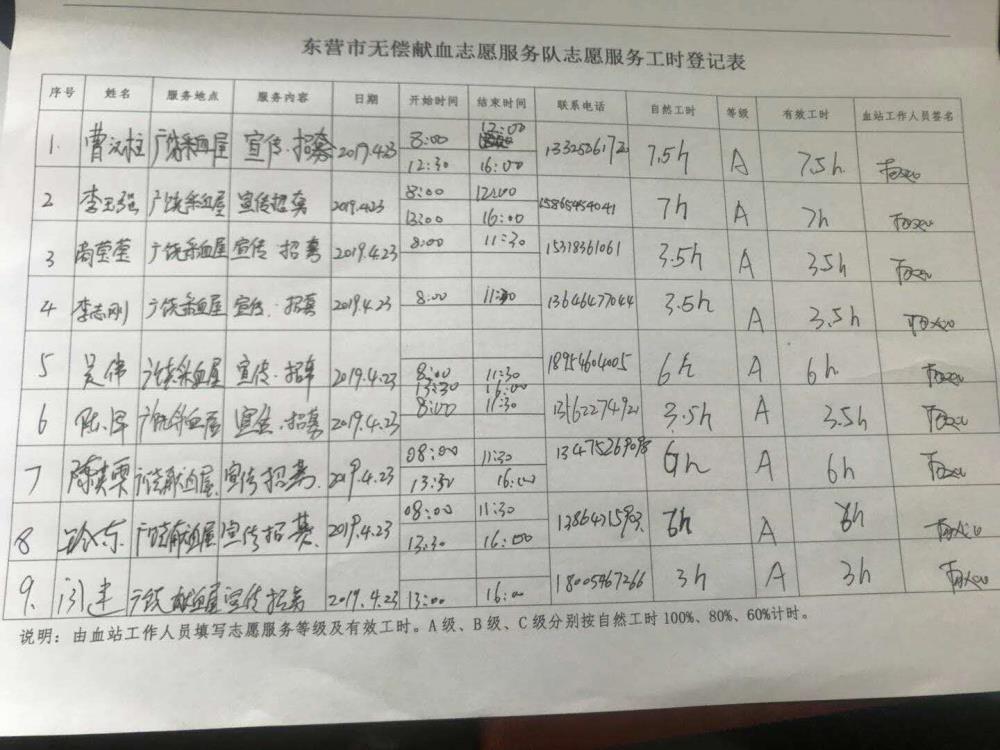 东营市无偿献血志愿服务队志愿服务工时登记表
序号 姓名 服务地点 服务内容 日期 开始时间 结束时间 联系电话 自然工时 等级 有效工时 血站工作人员签名
1. 广饶采血屋 宣传·招募 2019.4.23 8:00 12:00 7.5h A 7.5h
12:30 16:00
2 李玉强 广饶采血屋 宣传招募 2019.4.23 8:00 12:00 15865454041 7h A 7h
13:00 16:00
3 尚莹莹 广饶采血屋 宣传 招募 2019.4.23 8:00 11:30 15318361061 3.5h A 3.5h
4 李志刚 广饶采血屋 宣传·招募 2019.4.23 8:00 11:30 13646477044 3.5h A 3.5h
5 吴伟 广饶采血屋 宣传·招募 2019.4.23 8:00 11:30 18954604005 6h A 6h
13:30 16:00
6 广饶采血屋 宣传·招募 2019.4.23 8:00 11:30 3.5h A 3.5h
7 广饶献血屋 宣传招募 2019.4.23 08:00 11:30 13475269098 6h A 6h
13:30 16:00
8 广饶献血屋 宣传招募 2019.4.23 08:00 11:30 6h A 6h
13:30 16:00
9. 广饶献血屋 宣传招募 2019.4.23 13:00 16:00 18005467266 3h A 3h
说明：由血站工作人员填写志愿服务等级及有效工时。A级、B级、C级分别按自然工时100%、80%、60%计时。